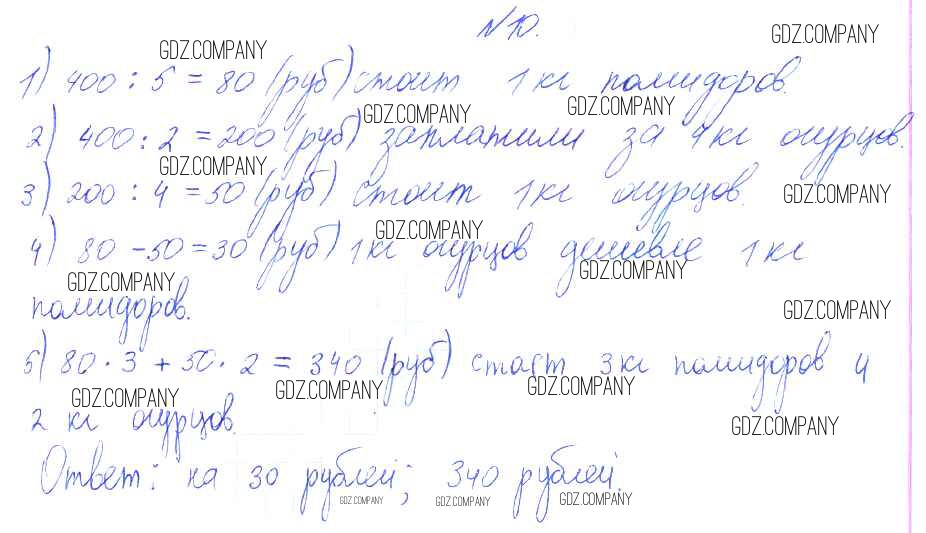 №10.
GDZ.COMPANY GDZ.COMPANY
1) 400 : 5 = 80 (руб) стоит 1 кг помидоров.
GDZ.COMPANY GDZ.COMPANY
2) 400 : 2 = 200 (руб) заплатили за 4 кг огурцов.
GDZ.COMPANY
3) 200 : 4 = 50 (руб) стоит 1 кг огурцов.
GDZ.COMPANY
GDZ.COMPANY
4) 80 - 50 = 30 (руб) 1 кг огурцов дешевле 1 кг
GDZ.COMPANY GDZ.COMPANY
помидоров.
GDZ.COMPANY
5) 80 · 3 + 50 · 2 = 340 (руб) стоят 3 кг помидоров и
GDZ.COMPANY GDZ.COMPANY GDZ.COMPANY
2 кг огурцов.
GDZ.COMPANY
Ответ: на 30 рублей; 340 рублей.
GDZ.COMPANY GDZ.COMPANY GDZ.COMPANY